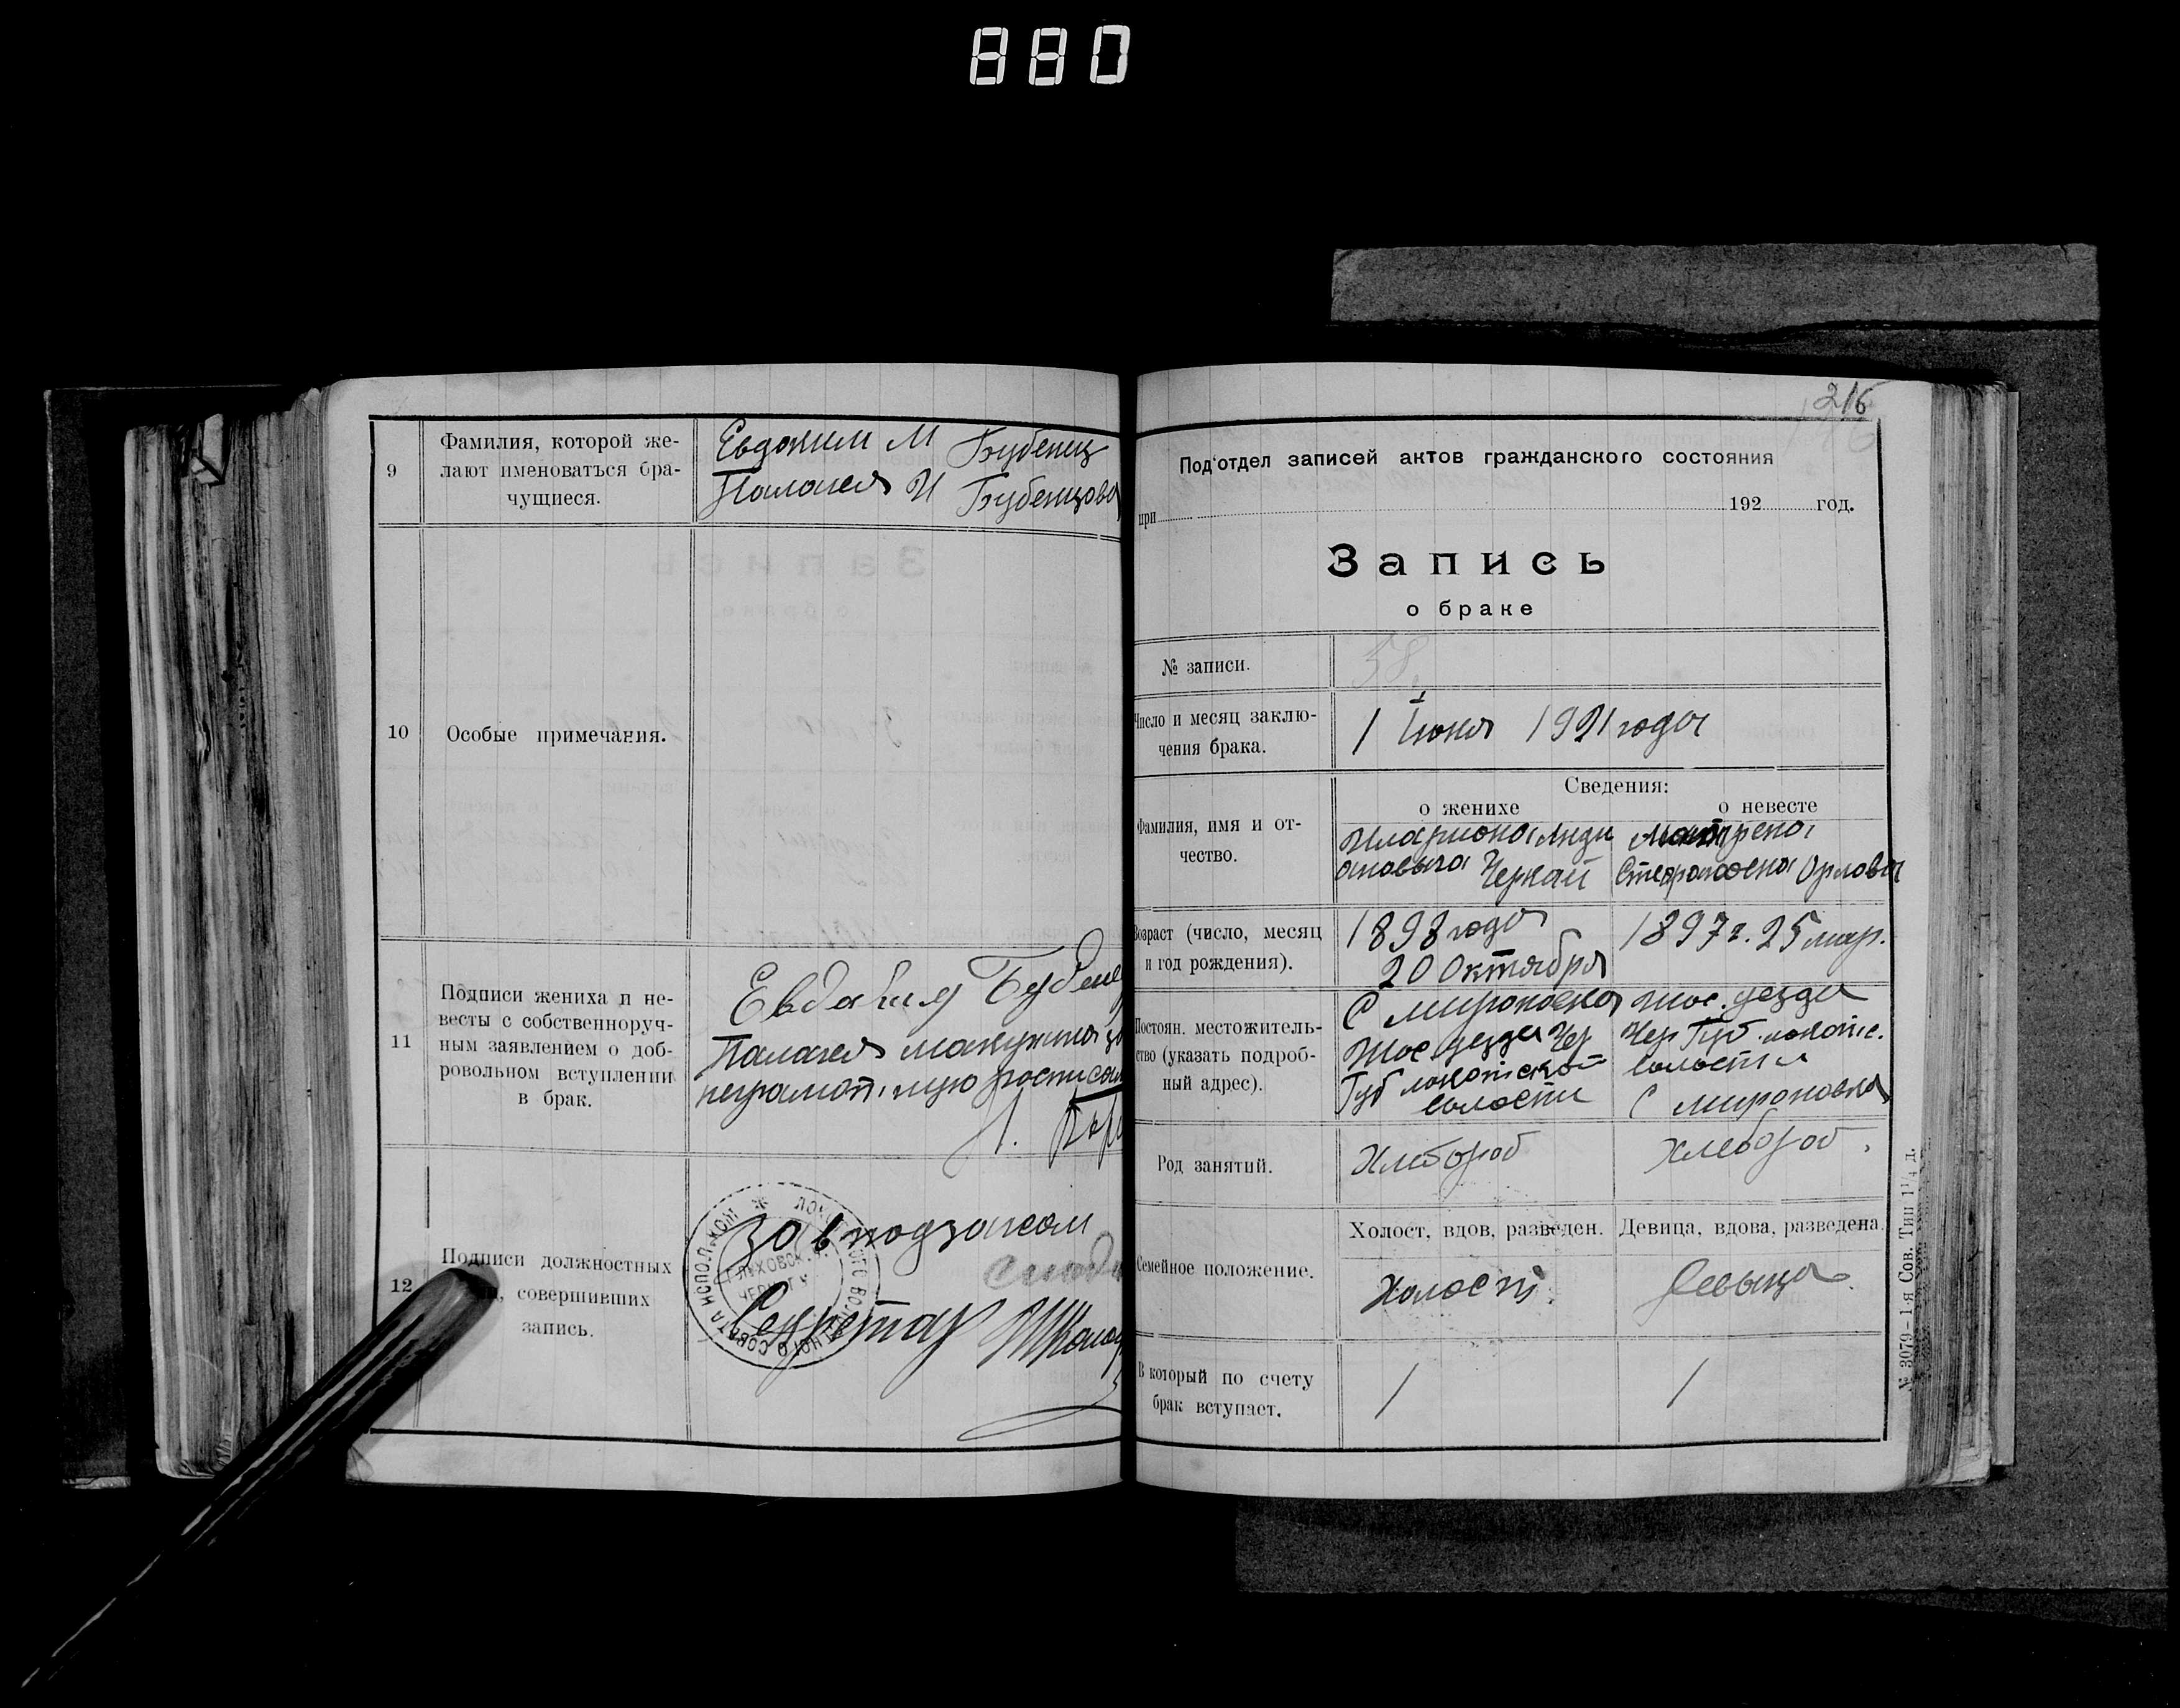 880
9
Фамилия, которой же-
лают именоваться бра-
чущиеся.
Евдоким М Бубенец
Палагея И Бубенцова
10
Особые примечания.
11
Подписи жениха и не-
весты с собственноруч-
ным заявлением о доб-
ровольном вступлении
в брак.
Палагея
неграмот.
12
Подписи должностных
совершивших
запись.
За в подзагсом
Секретар
ГЛУХОВСК. У.
216
Под'отдел записей актов гражданского состояния
при 192 год.
Запись
о браке
№ записи.
58
Число и месяц заклю-
чения брака.
1 Июня 1921 года
Сведения:
Фамилия, имя и от-
чество.
о женихе
Илариона
Черкай
о невесте
Мотрена
Орлова
Возраст (число, месяц
и год рождения).
1898 года
20 Октября
1897 г. 25 мар.
Постоян. местожитель-
ство (указать подроб-
ный адрес).
С мироновка
уезда Чер
Губ локотской
волости
уезда
Чер Губ локотс.
волости
С мироновка
Род занятий.
Хлебороб
Хлебороб.
Семейное положение.
Холост, вдов, разведен.
Холост.
Девица, вдова, разведена.
Девыца
В который по счету
брак вступает.
1
1
№ 3079 – 1-я Сов. Тип 1¹/₄ д.